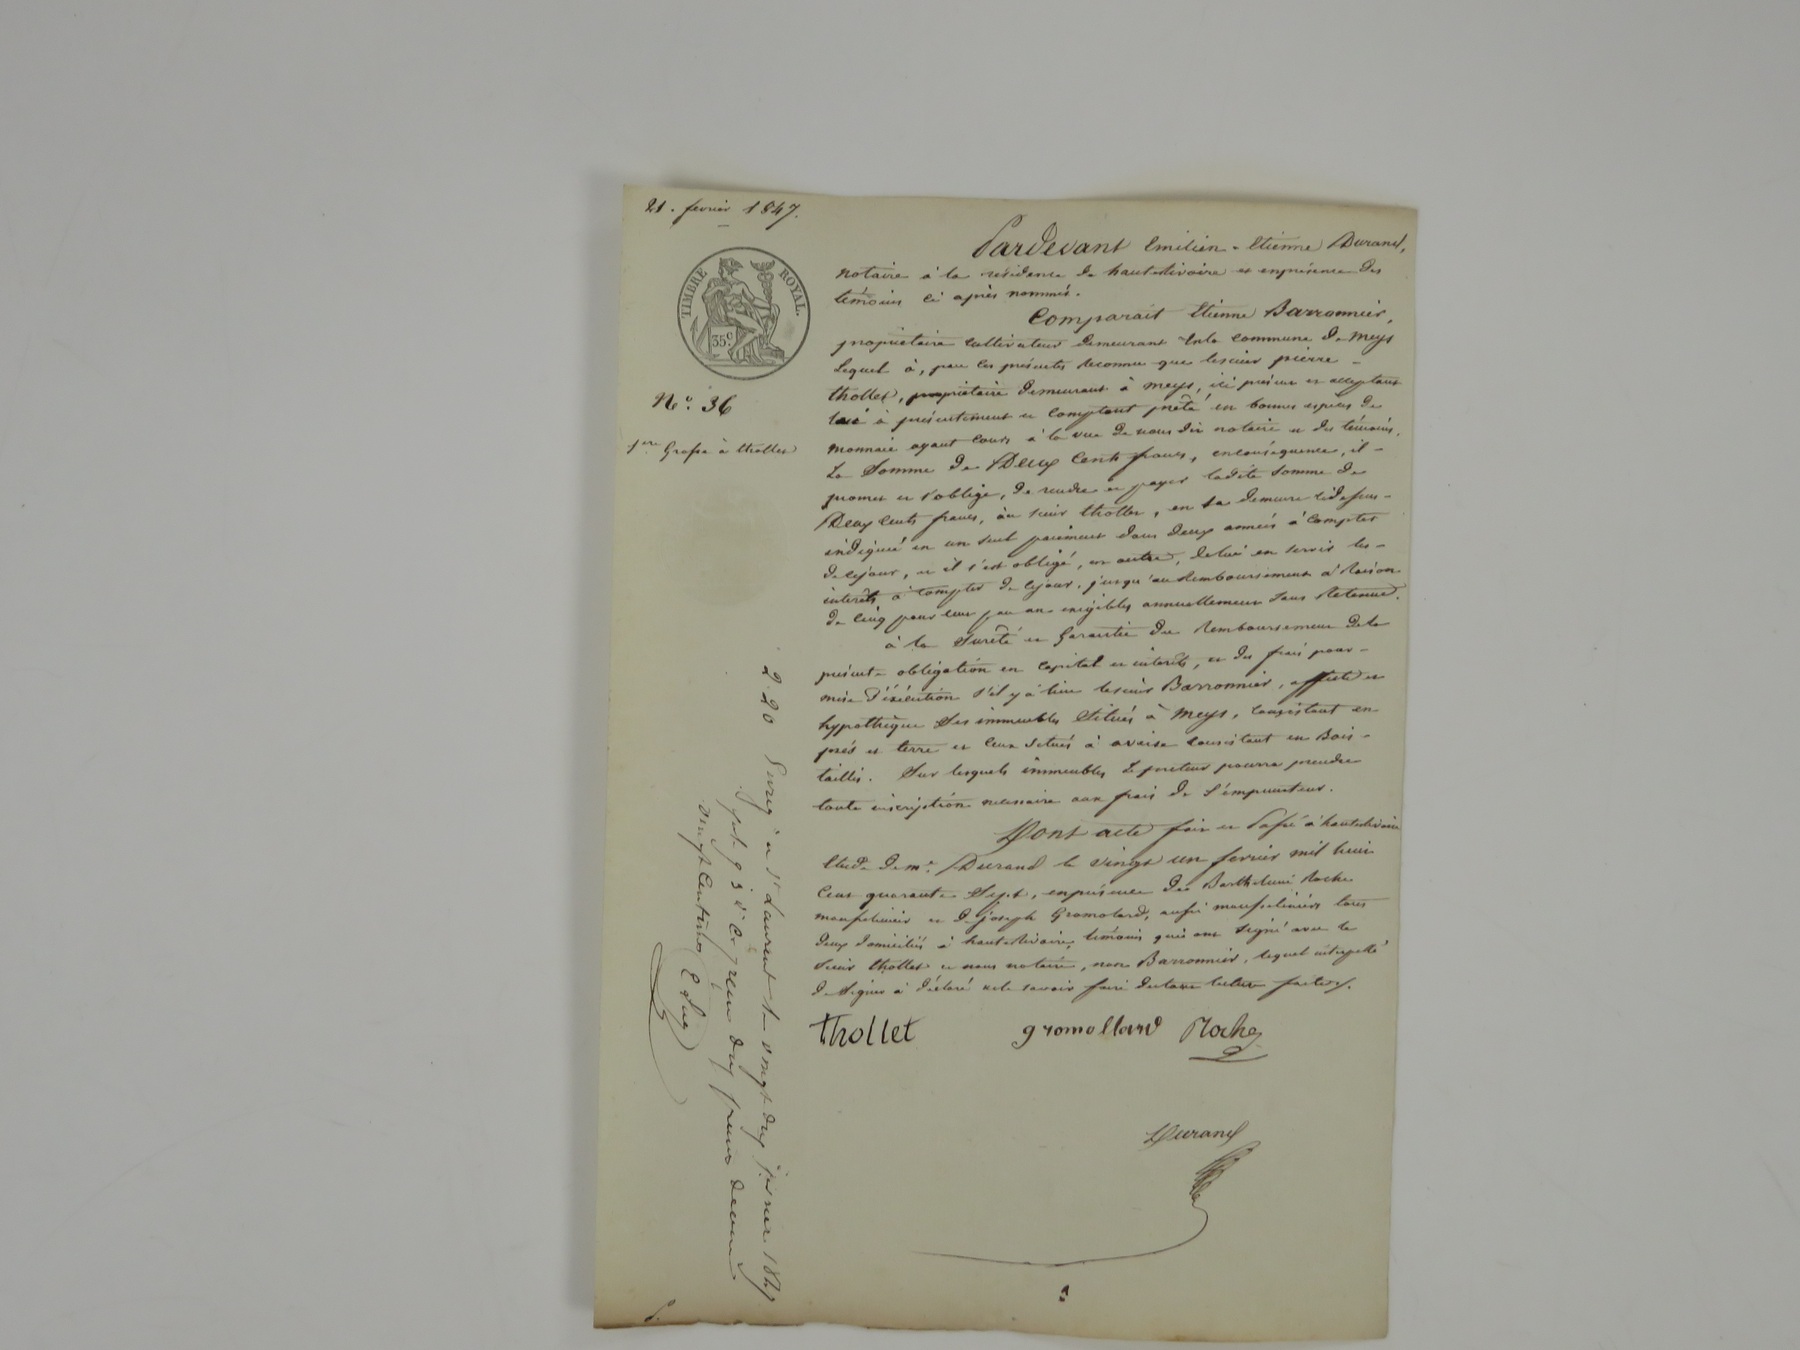 21. fevrier 1847.
TIMBRE ROYAL.
35c.
No. 36
1ere Grosse à thollet
Pardevant Emilien-Etienne Durand,
notaire à la résidence de hauterivoire et enprésence des
témoins ci après nommés.
Comparait Etienne Barronnier,
propriétaire cultivateur demeurant enla commune de Meys
lequel à, par ces présentes reconnu que lesieur pierre
thollet, propriétaire demeurant à Meys, ici présent et acceptant
lui à présentement et comptant prêté en bonnes espèces de
monnaie ayant cours à la vue de nous dit notaire et des témoins,
La Somme de Deux Cents francs, enconséquence, il
promet et s'oblige, de rendre et payer ladite somme de
Deux Cents francs, au sieur thollet, en sa demeure cidessus
indiquée en un seul paiement dans deux années à compter
de cejour, et il s'est obligé, en outre, delui en servir les
interêts à compter de cejour, jusqu'au Remboursement à Raison
de cinq pour cent par an exigibles annuellement sans Retenue.
à la Sureté et Garantie du Remboursement dela
présente obligation en capital et interêts, et des frais pour
mise d'éxécution s'il y à lieu lesieur Barronnier, affecte et
hypothèque Ses immeubles Situés à Meys, consistant en
prés et terre et ceux situés à aveise consistant en Bois
taillis. Sur lesquels immeubles Le preteur pourra prendre
toute inscription nécessaire aux frais de l'émprunteur.
Dont acte fait et Passé à hauterivoire
Etude de me. Durand le vingt un fevrier mil huit
Cent quarante Sept, enprésence de Barthelemi Roche
et de joseph Gromolard, aussi tous
deux domiciliés à hauterivoire, témoins qui ont signé avec le
sieur thollet et nous notaire, non Barronnier, lequel interpellé
de signer à déclaré nele savoir faire delaue lecture faite.
Thollet gromollard Roche
Durand
2.20 Enreg. à St Laurent le vingt deux fevrier 1847
fol. 93 Reçu deux francs decime
vingt centimes